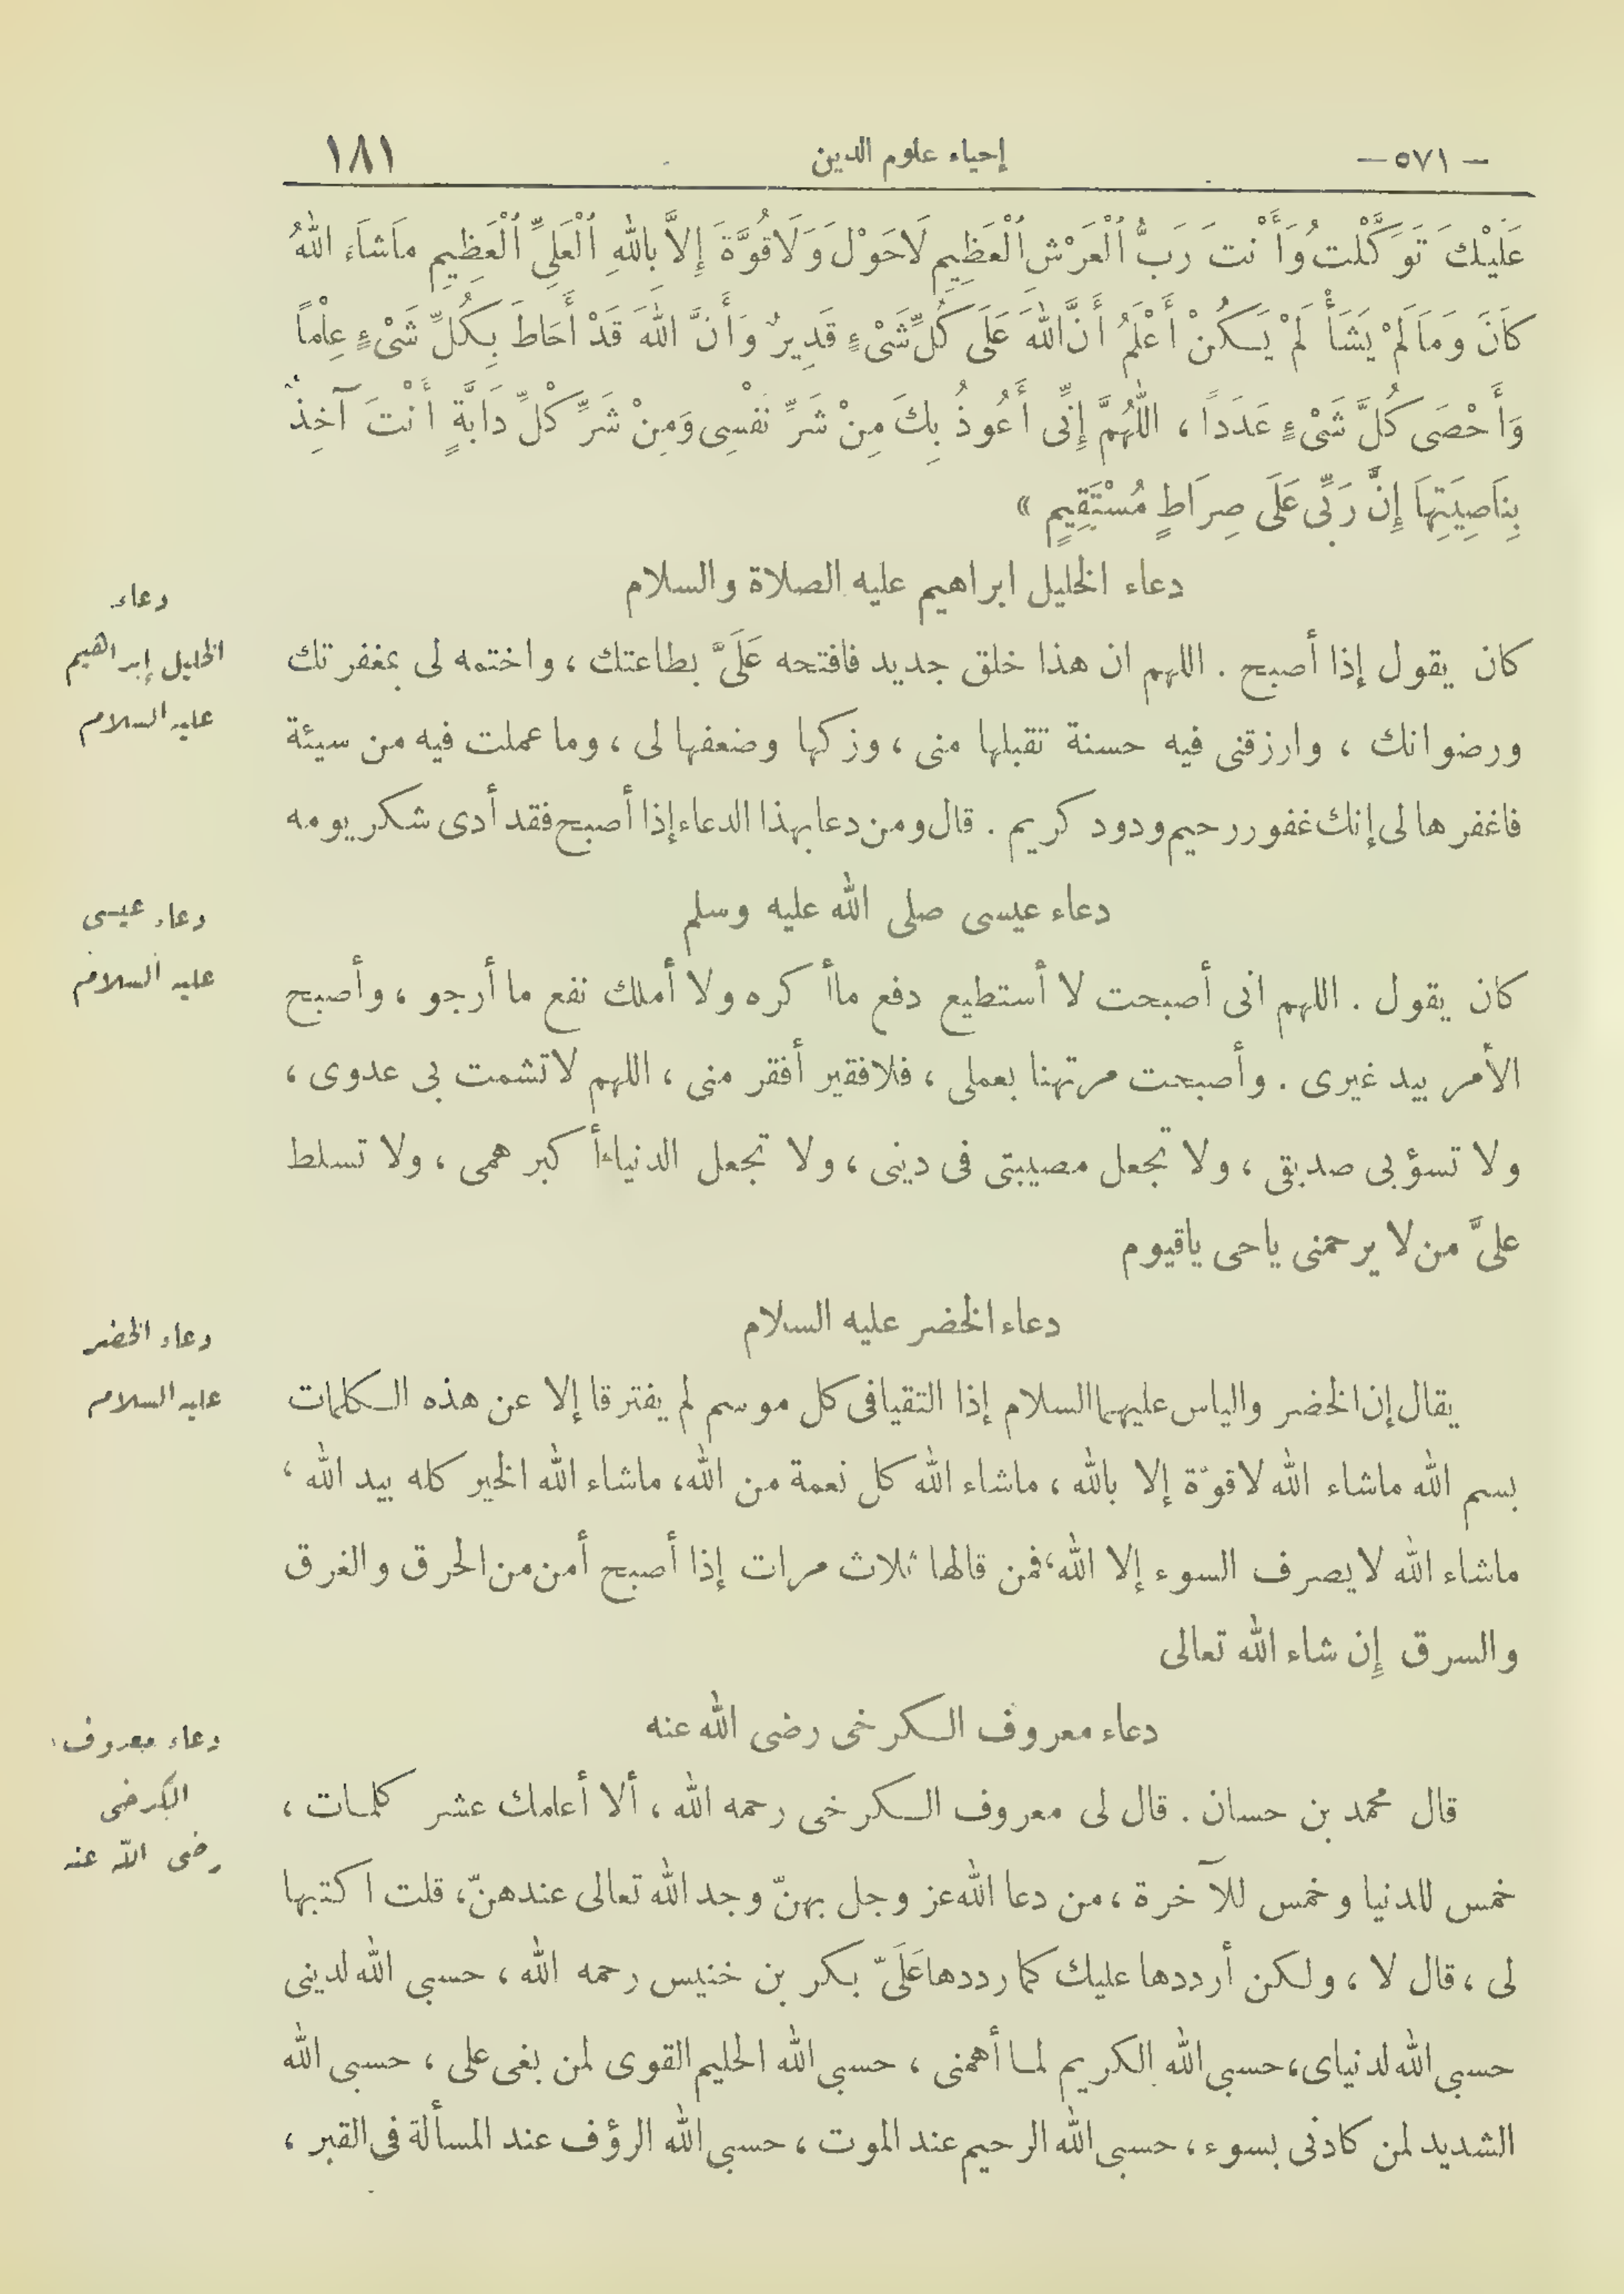 - ٥٧١ -
إحياء علوم الدين
١٨١
عَلَيْكَ تَوَكَّلْتُ وَأَنْتَ رَبُّ ٱلْعَرْشِ ٱلْعَظِيمِ لَاحَوْلَ وَلَاقُوَّةَ إِلاَّ بِاللهِ ٱلْعَلِيِّ ٱلْعَظِيمِ مَاشَاءَ اللهُ
كَانَ وَمَا لَمْ يَشَأْ لَمْ يَكُنْ أَعْلَمُ أَنَّ اللهَ عَلَى كُلِّ شَىْءٍ قَدِيرٌ وَأَنَّ اللهَ قَدْ أَحَاطَ بِكُلِّ شَىْءٍ عِلْماً
وَأَحْصَى كُلَّ شَىْءٍ عَدَداً ، اللّٰهُمَّ إِنِّى أَعُوذُ بِكَ مِنْ شَرِّ نَفْسِى وَمِنْ شَرِّ كُلِّ دَابَّةٍ أَنْتَ آخِذٌ
بِنَاصِيَتِهَا إِنَّ رَبِّى عَلَى صِرَاطٍ مُسْتَقِيمٍ »
دعاء الخليل ابراهيم عليه الصلاة والسلام
دعاء
الخليل إبراهيم
عليه السلام
كان يقول إذا أصبح . اللهم ان هذا خلق جديد فافتحه عَلَىَّ بطاعتك ، واختمه لى بمغفرتك
ورضوانك ، وارزقنى فيه حسنة تقبلها منى ، وزكها وضعفها لى ، وما عملت فيه من سيئة
فاغفرها لى إنك غفور رحيم ودود كريم . قال ومن دعا بهذا الدعاء إذا أصبح فقد أدى شكر يومه
دعاء عيسى صلى الله عليه وسلم
دعاء عيسى
عليه السلام
كان يقول . اللهم انى أصبحت لا أستطيع دفع ما أكره ولا أملك نفع ما أرجو ، وأصبح
الأمر بيد غيرى . وأصبحت مرتهنا بعملى ، فلا فقير أفقر منى ، اللهم لا تشمت بى عدوى ،
ولا تسؤ بى صديقى ، ولا تجعل مصيبتى فى دينى ، ولا تجعل الدنيا أكبر همى ، ولا تسلط
علىَّ من لا يرحمنى ياحى ياقيوم
دعاء الخضر عليه السلام
دعاء الخضر
عليه السلام
يقال إن الخضر والياس عليهما السلام إذا التقيا فى كل موسم لم يفترقا إلا عن هذه الكلمات
بسم الله ماشاء الله لا قوّة إلا بالله ، ماشاء الله كل نعمة من الله، ماشاء الله الخير كله بيد الله ،
ماشاء الله لا يصرف السوء إلا الله، فمن قالها ثلاث مرات إذا أصبح أمن من الحرق والغرق
والسرق إن شاء الله تعالى
دعاء معروف الكرخى رضى الله عنه
دعاء معروف
الكرخى
رضى الله عنه
قال محمد بن حسان . قال لى معروف الكرخى رحمه الله ، ألا أعلمك عشر كلمات ،
خمس للدنيا وخمس للآخرة ، من دعا الله عز وجل بهنّ وجد الله تعالى عندهنّ، قلت اكتبها
لى ، قال لا ، ولكن أرددها عليك كما رددها عَلَىّ بكر بن خنيس رحمه الله ، حسبى الله لدينى
حسبى الله لدنياى، حسبى الله الكريم لما أهمنى ، حسبى الله الحليم القوى لمن بغى على ، حسبى الله
الشديد لمن كادنى بسوء ، حسبى الله الرحيم عند الموت ، حسبى الله الرؤف عند المسألة فى القبر ،